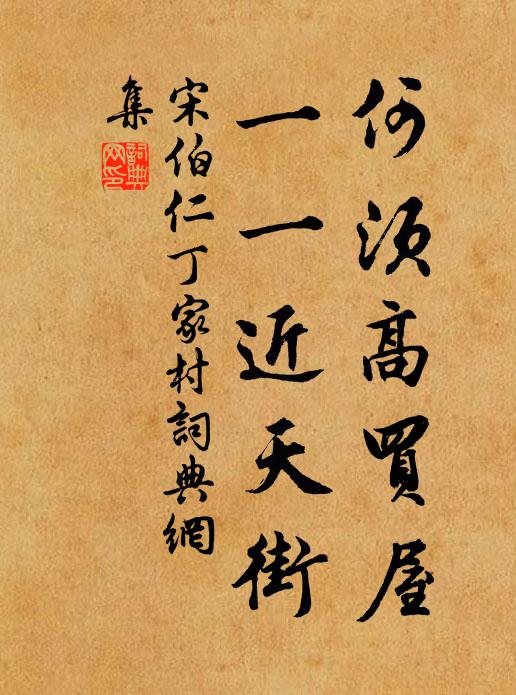 何須高買屋
一一近天街
宋伯仁丁家村詞典網
集
詞典網印